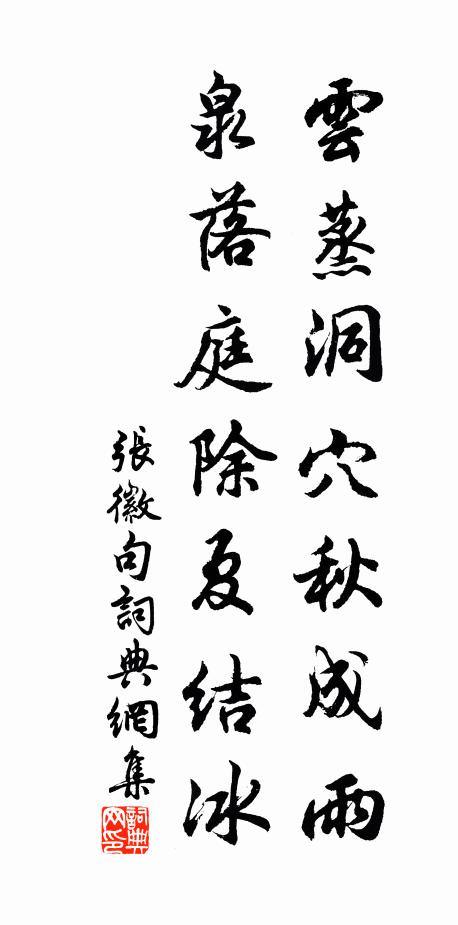 雲蒸洞穴秋成雨
泉落庭除夏結冰
張徽句詞典網集
詞典網印